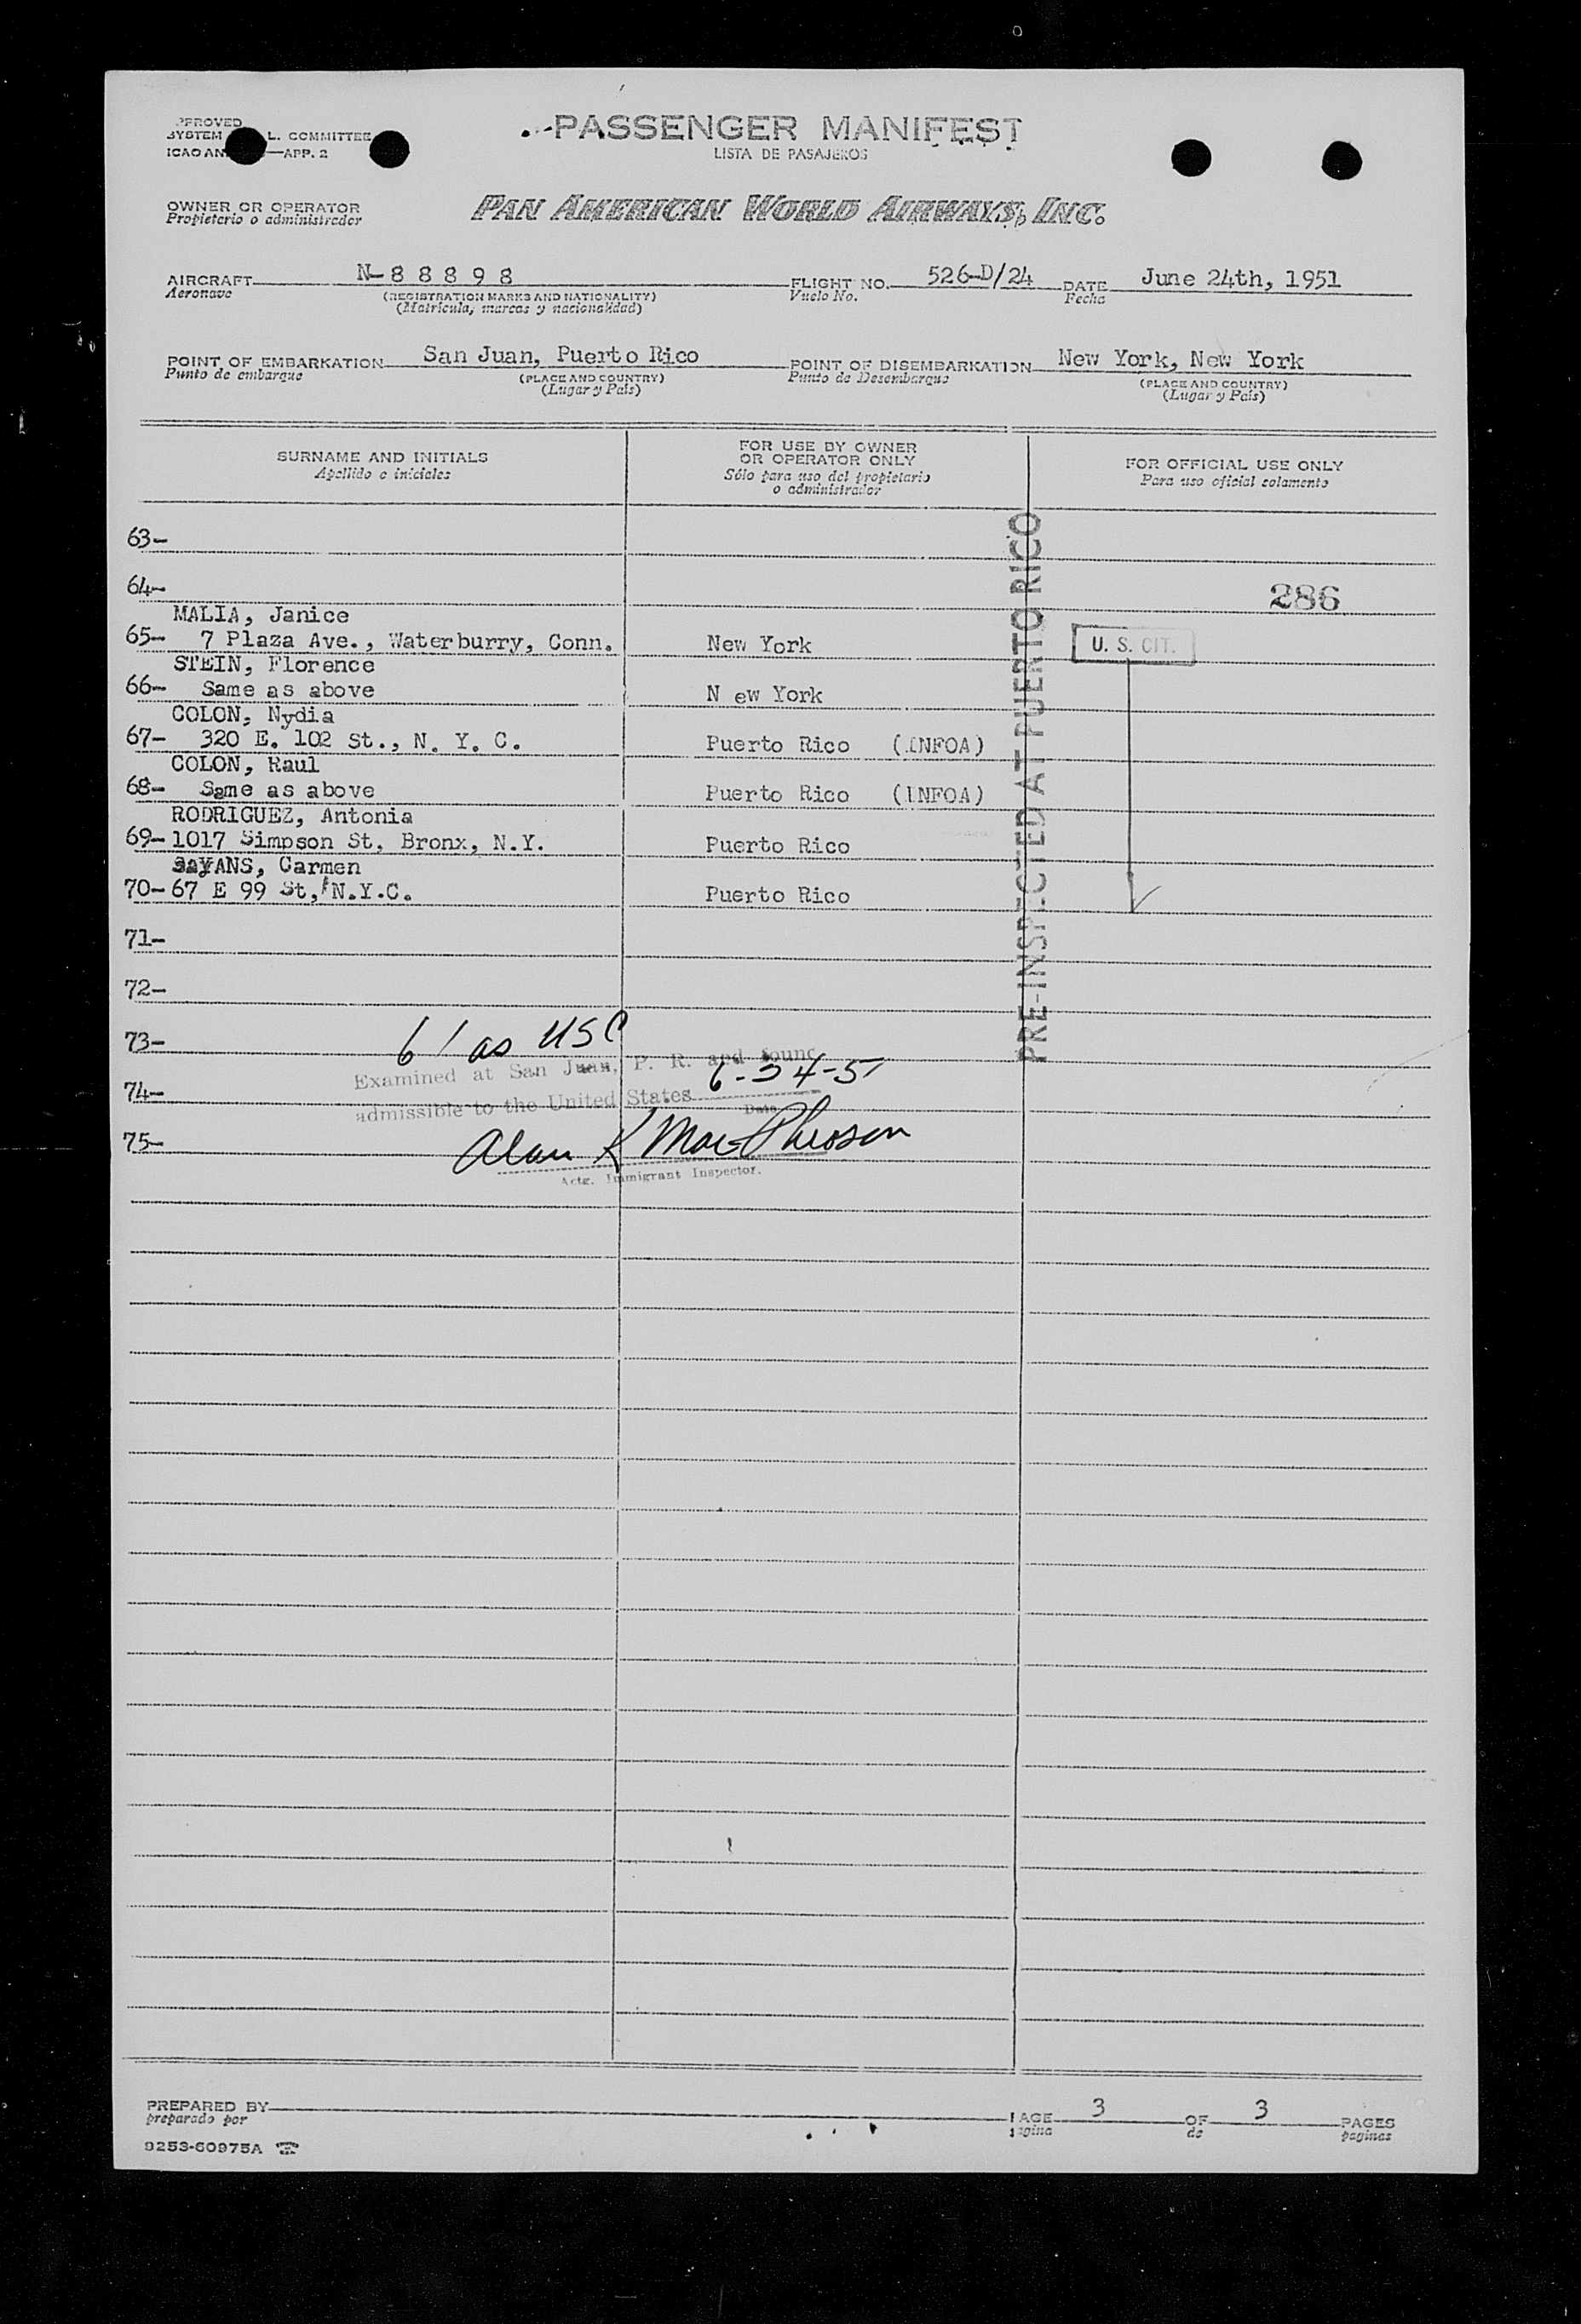 PPROVED
SYSTEM L. COMMITTEE
ICAO AN —APP. 2
PASSENGER MANIFEST
LISTA DE PASAJEROS
OWNER OR OPERATOR
Propietario o administrador
PAN AMERICAN WORLD AIRWAYS, INC.
AIRCRAFT N-88898 FLIGHT NO. 526-D/24 DATE June 24th, 1951
Aeronave (REGISTRATION MARKS AND NATIONALITY) Vuelo No. Fecha
(Matricula, marcas y nacionalidad)
POINT OF EMBARKATION San Juan, Puerto Rico POINT OF DISEMBARKATION New York, New York
Punto de embarque (PLACE AND COUNTRY) Punto de Desembarque (PLACE AND COUNTRY)
(Lugar y País) (Lugar y País)
SURNAME AND INITIALS
Apellido e iniciales
FOR USE BY OWNER
OR OPERATOR ONLY
Sólo para uso del propietario
o administrador
FOR OFFICIAL USE ONLY
Para uso oficial solamente
63-
64- 286
MALIA, Janice
65- 7 Plaza Ave., Waterburry, Conn. New York U. S. CIT.
STEIN, Florence
66- Same as above N ew York
COLON, Nydia
67- 320 E. 102 St., N. Y. C. Puerto Rico (INFOA)
COLON, Raul
68- Same as above Puerto Rico (INFOA)
RODRIGUEZ, Antonia
69- 1017 Simpson St, Bronx, N.Y. Puerto Rico
YANS, Carmen
70- 67 E 99 St, N.Y.C. Puerto Rico
PRE-INSPECTED AT PUERTO RICO
71-
72-
73- 61 as USC
Examined at San Juan, P. R. and found
74- admissible to the United States 6-24-51
Date
75- Alan K MacPherson
Actg. Immigrant Inspector.
PREPARED BY PAGE 3 OF 3 PAGES
preparado por página de paginas
9253-60975A